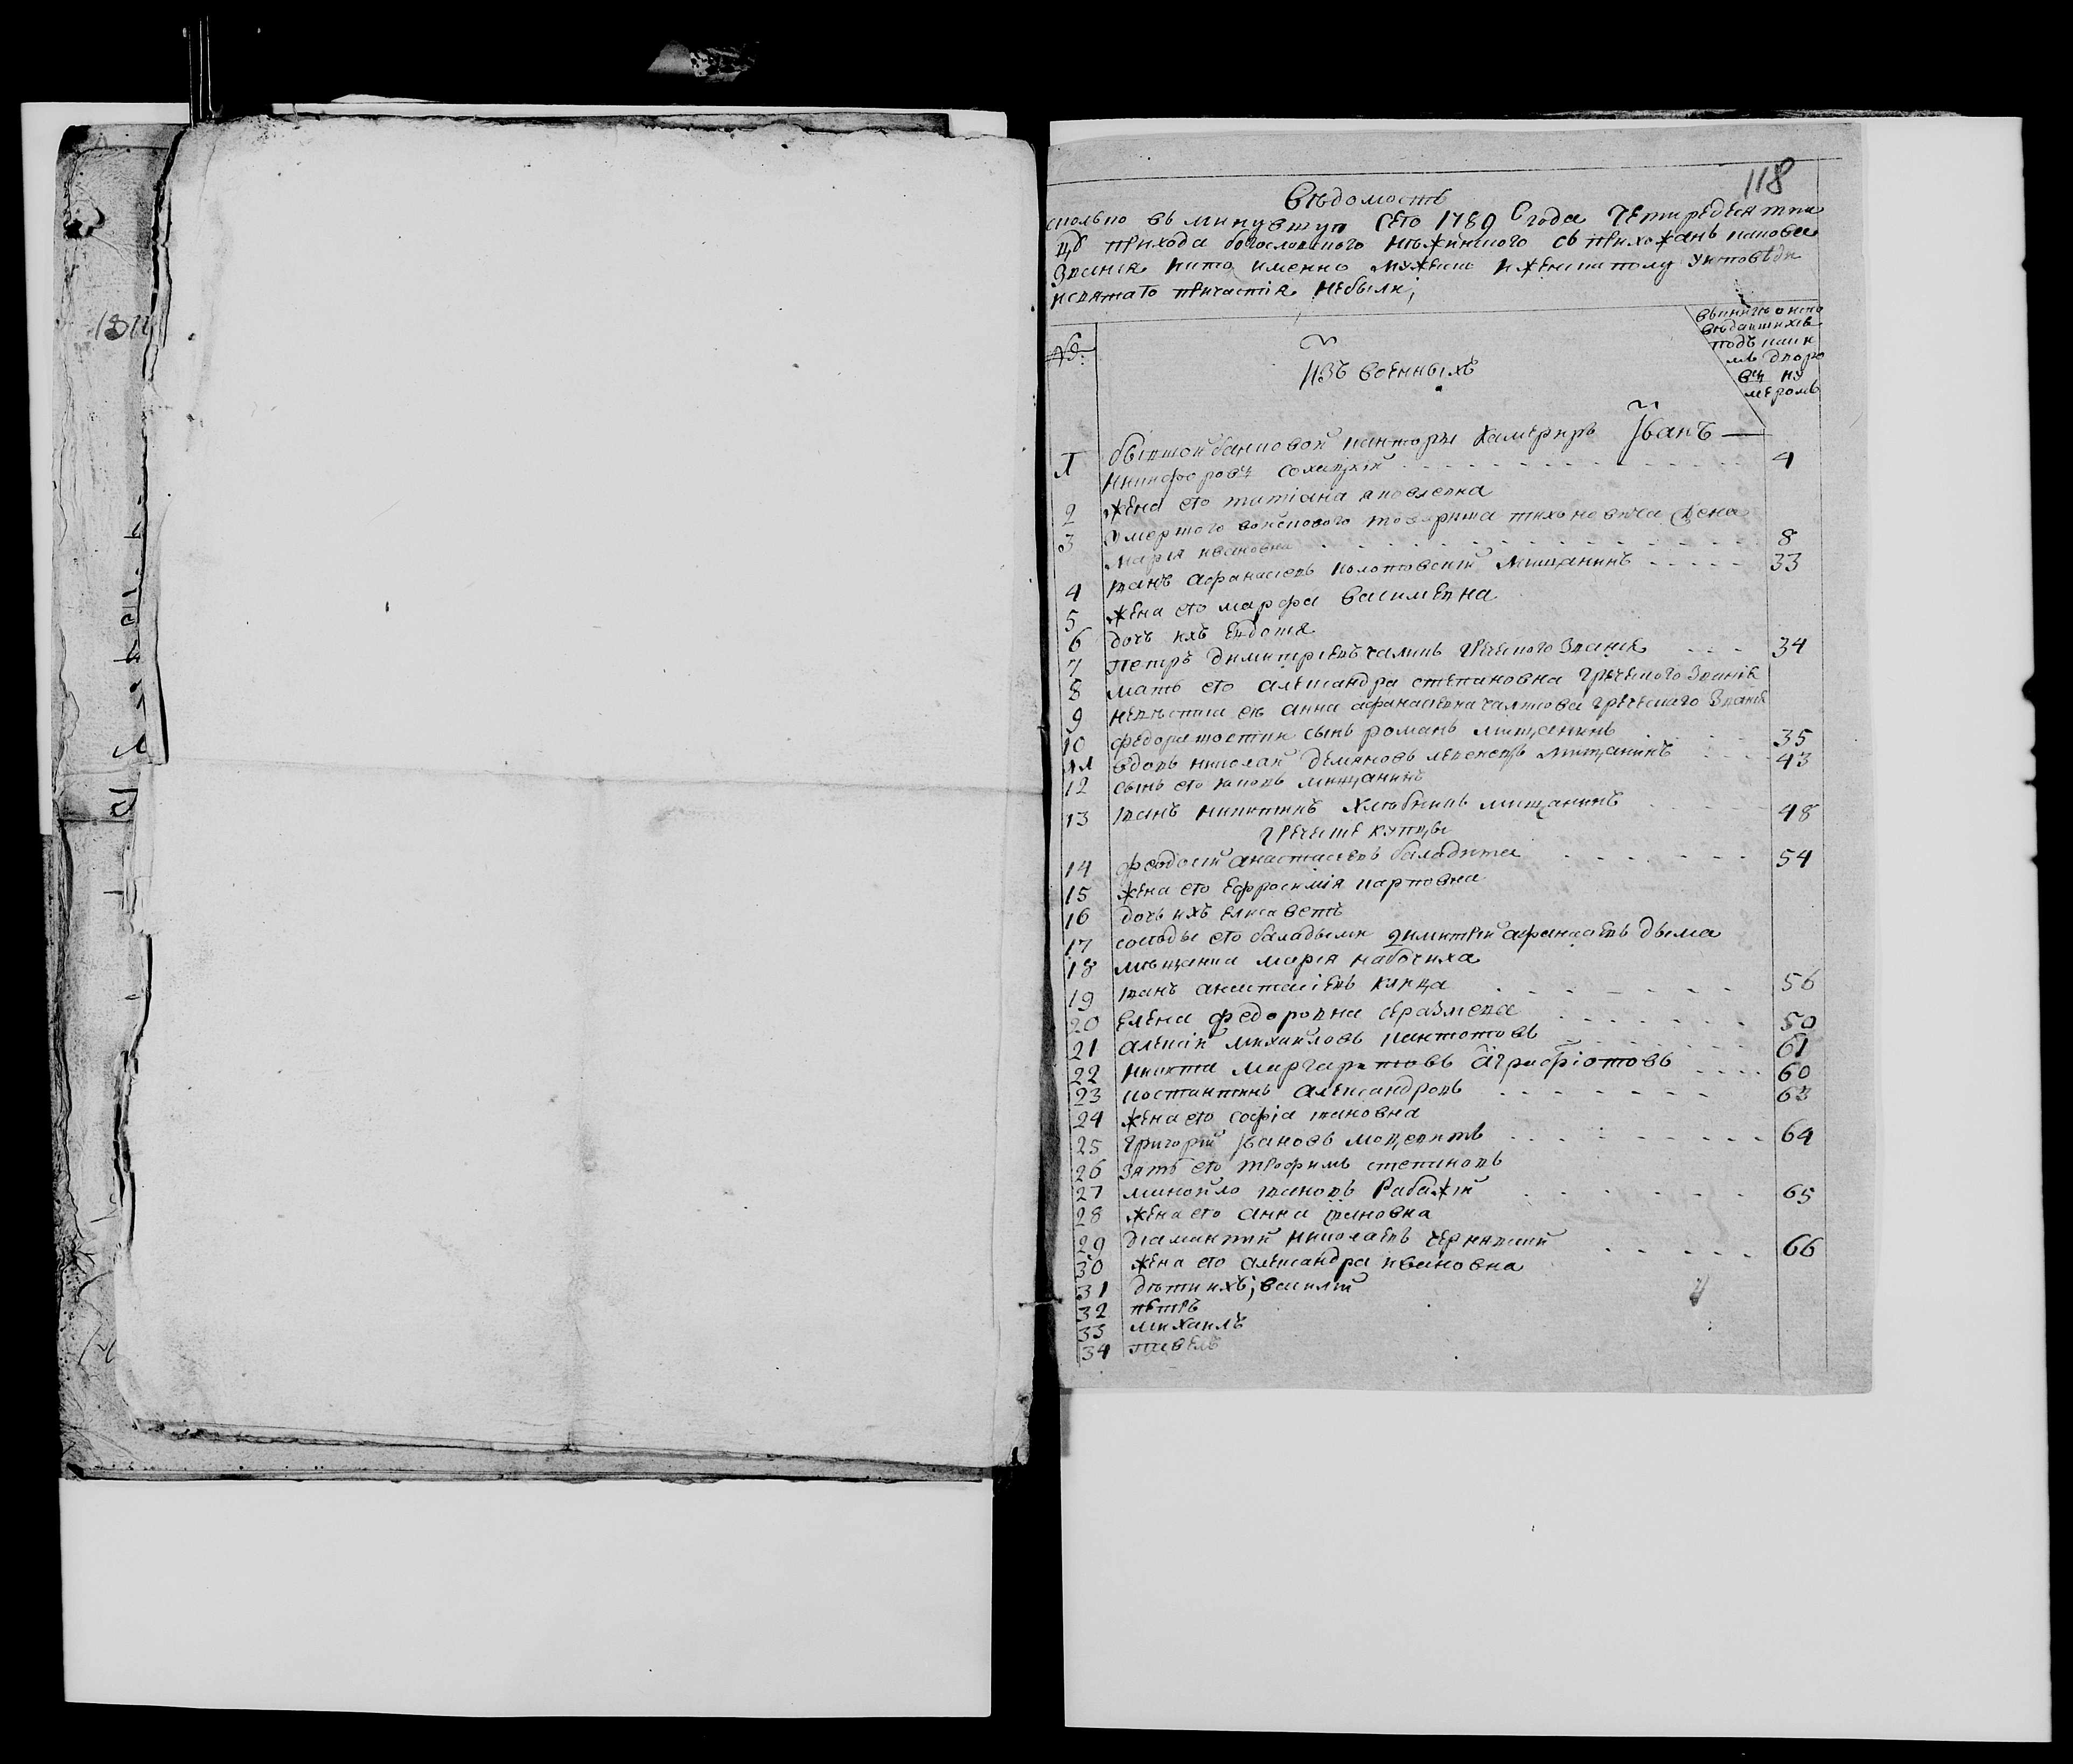 118
Вѣдомость
сколько въ минувшую сего 1789 года четиредесятни
цу прихода богословского нѣжинского съ прихожанъ каковаго
звания хито именно мужеска и женска полу уисповѣди
исвятаго причастія небыли;
№
Изъ военныхъ
вкнигѣ о испо
вѣдавшихся
подъ каки
мъ дворо
вы ну
меромъ
1 бывшой банковой канторы камериръ Іванъ —
Никифоровъ Сохацкій 4
2 жена его татіана яковлевна
3 умершого войскового товариша тихоновича жена
марія ивановна 8
4 іванъ афанасіевъ колотовскій мищанинъ 33
5 жена его марфа василиевна
6 дочъ ихъ евдотя
7 петръ димитріевъ чалинъ греческого звания 34
8 мать его александра степановна греческого звания
9 невѣстка ея анна афанасіевна чалкова греческаго звания
10 федора костки сынъ романъ мищанинъ 35
11 вдовъ николай демяновъ мещанинъ 43
12 сынъ его яковъ мищанинъ
13 іванъ никитинъ хлѣбникъ мищанинъ 48
греческие купцы
14 феодосій анастасіевъ баладыма 54
15 жена его ефросимія карповна
16 дочь ихъ елисаветъ
17 соседы его баладыми димитрій афанасіевъ дыма
18 мѣщанка марія набочиха
19 іванъ анастасіевъ кирца 56
20 елена федоровна 50
21 алексій михайловъ кантотовъ 61
22 никита маргаритовъ аграфіотовъ 60
23 костантинъ александровъ 63
24 жена его софіа івановна
25 григорій Івановъ 64
26 зять его трофимъ степановъ
27 манойло івановъ рабажій 65
28 жена его анна івановна
29 діамантій николаевъ чернявский 66
30 жена его александра ивановна
31 дѣти ихъ; василій
32 петръ
33 михаилъ
34 павелъ